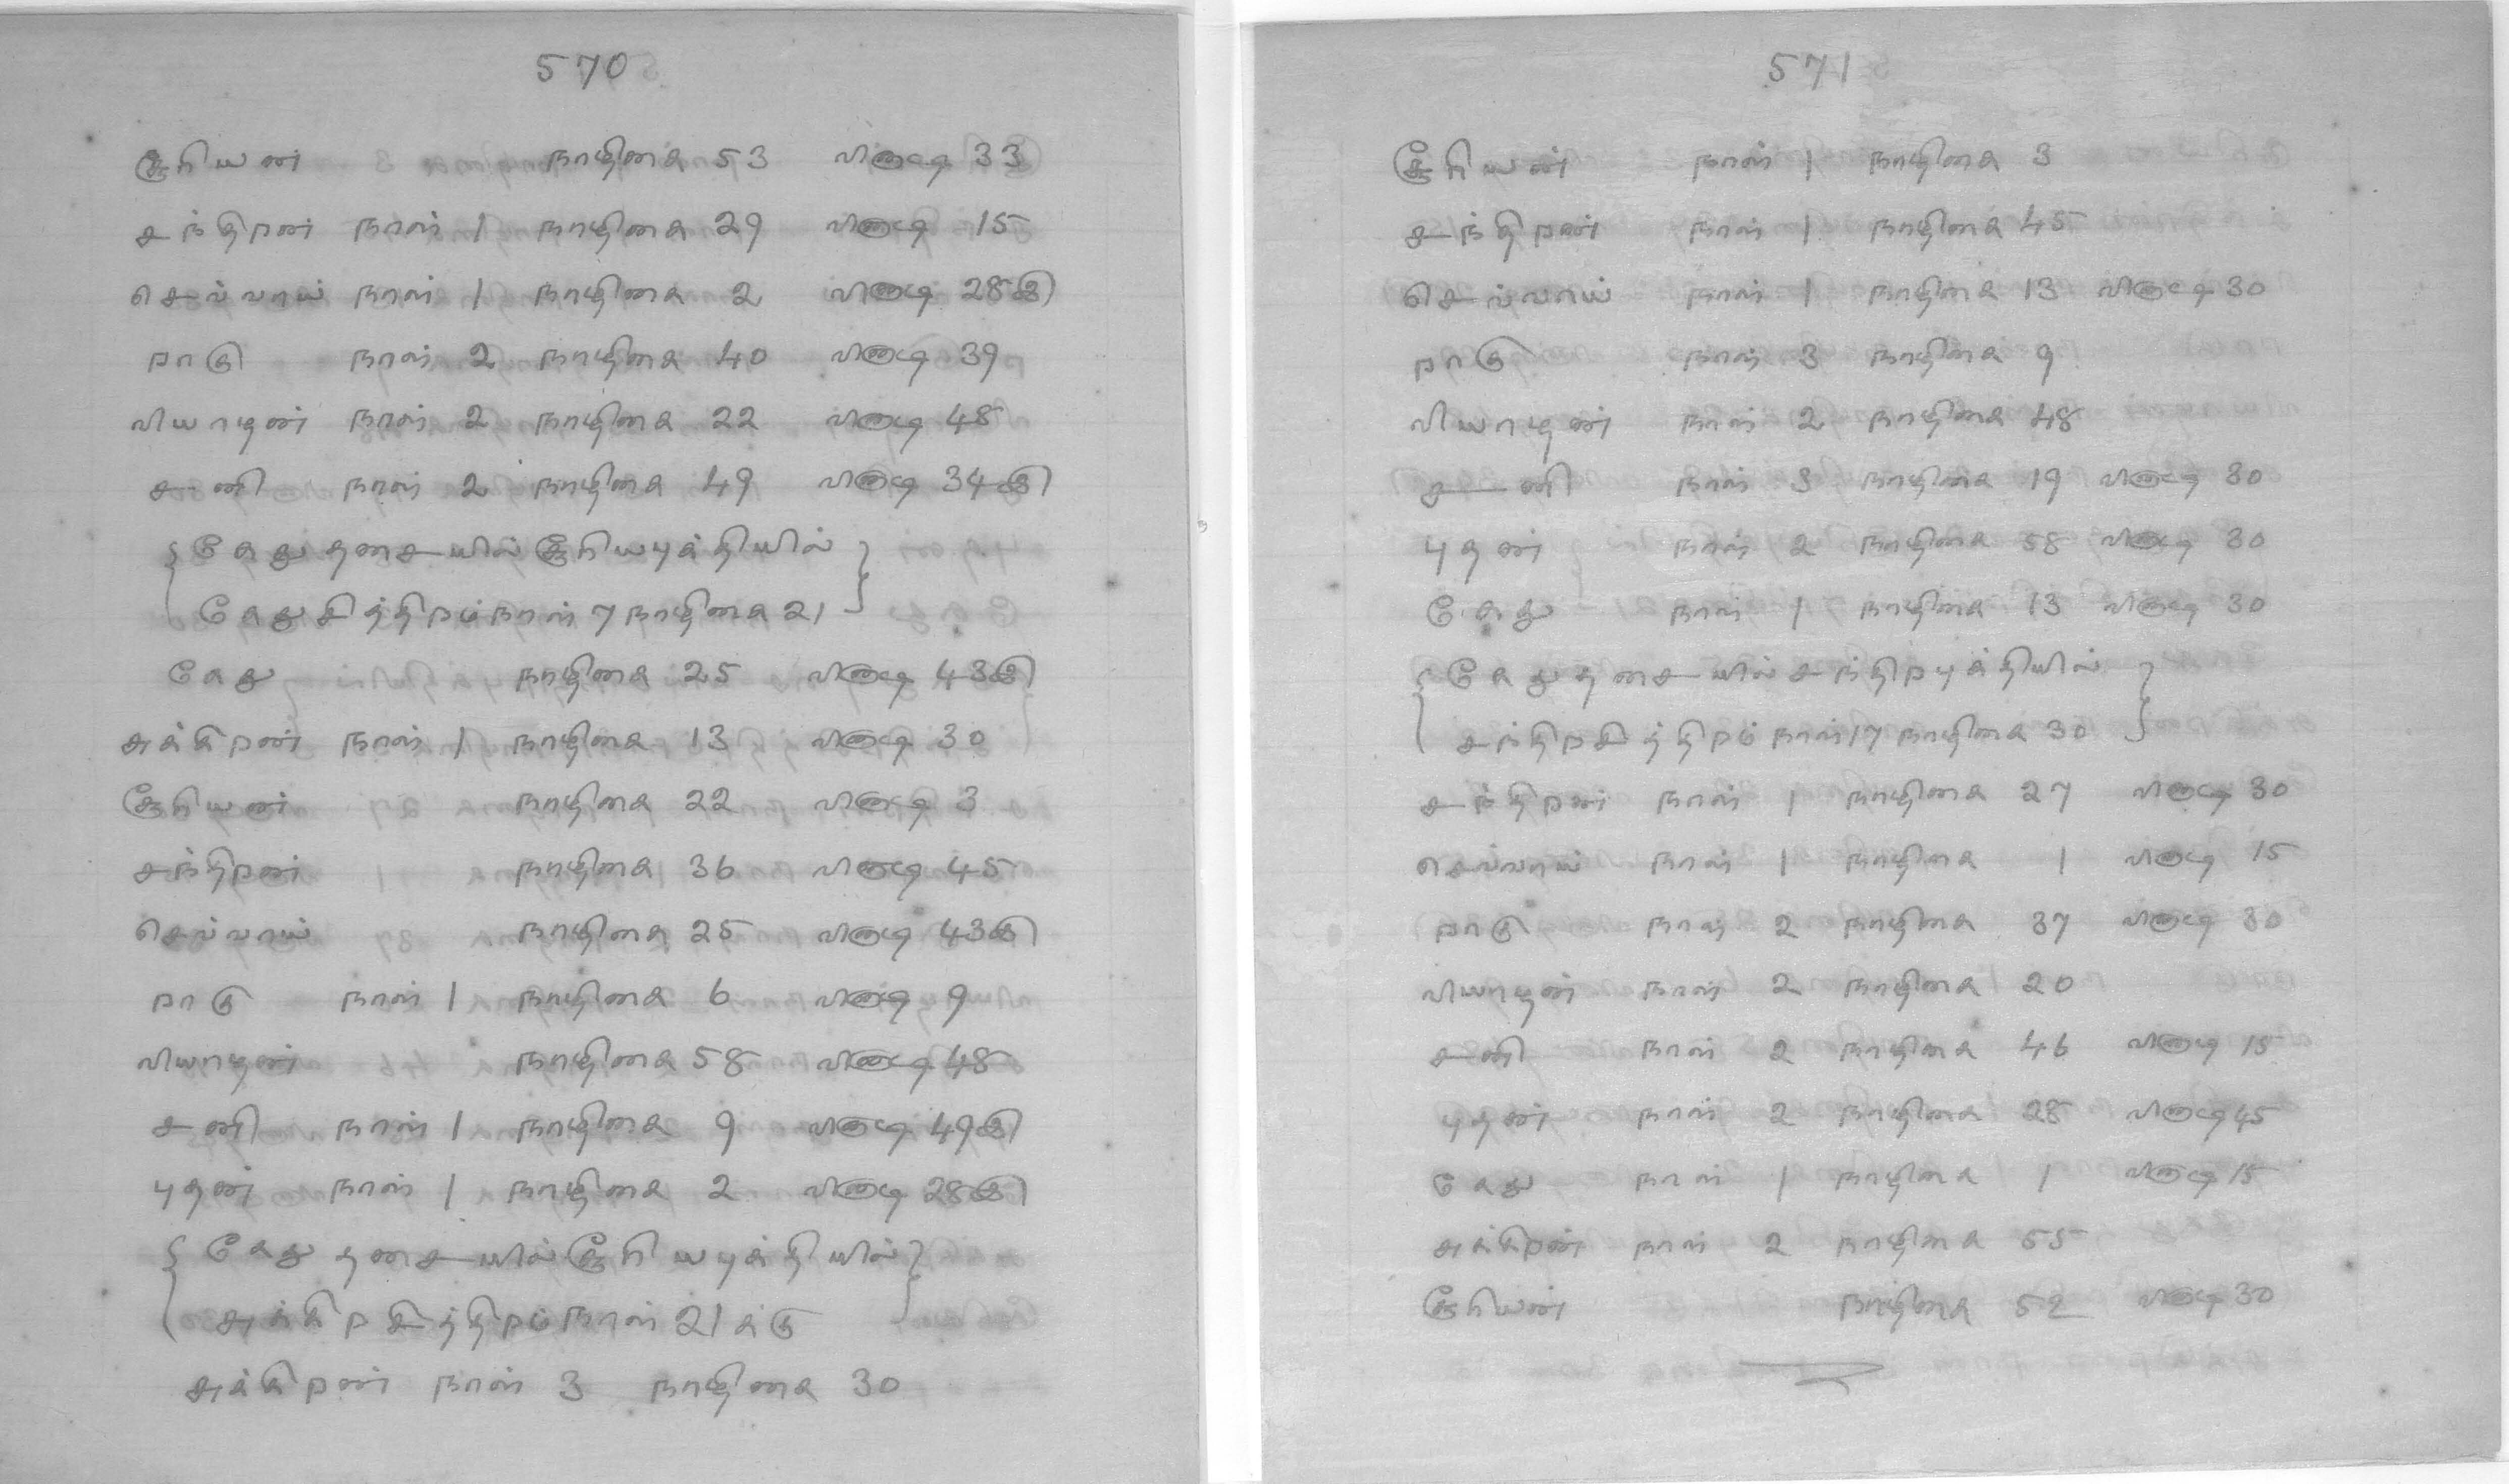 570
சூரியன் நாழிகை 53 விநாடி 33
சந்திறன் நாள் 1 நாழிகை 29 விநாடி 15
செவ்வாய் நாள் 1 நாழிகை 2 விநாடி 28இ)
றாகு நாள் 2 நாழிகை 40 விநாடி 39
வியாழன் நாள் 2 நாழிகை 22 விநாடி 48
சனி நாள் 2 நாழிகை 49 விநாடி 34இ)
{கேது தசையில் சூரியபுக்தியில்}
கேது சித்திறம் நாள் 7 நாழிகை 21
கேது நாழிகை 25 விநாடி 43இ)
சுக்கிறன் நாள் 1 நாழிகை 13 விநாடி 30
சூரியன் நாழிகை 22 விநாடி 3
சந்திறன் நாழிகை 36 விநாடி 45
செவ்வாய் நாழிகை 25 விநாடி 43இ)
றாகு நாள் 1 நாழிகை 6 விநாடி 9
வியாழன் நாழிகை 58 விநாடி 48
சனி நாள் 1 நாழிகை 9 விநாடி 49இ)
புதன் நாள் 1 நாழிகை 2 விநாடி 28இ)
{கேது தசையில் சூரியபுக்தியில்}
சுக்கிறசித்திறம் நாள் 21க்கு
சுக்கிறன் நாள் 3 நாழிகை 30
571
சூரியன் நாள் 1 நாழிகை 3
சந்திறன் நாள் 1 நாழிகை 45
செவ்வாய் நாள் 1 நாழிகை 13 விநாடி 30
றாகு நாள் 3 நாழிகை 9
வியாழன் நாள் 2 நாழிகை 48
சனி நாள் 3 நாழிகை 19 விநாடி 30
புதன் நாள் 2 நாழிகை 58 விநாடி 30
கேது நாள் 1 நாழிகை 13 விநாடி 30
{கேது தசையில் சந்திறபுக்தியில்}
சந்திறசித்திறம் நாள் 17 நாழிகை 30
சந்திறன் நாள் 1 நாழிகை 27 விநாடி 30
செவ்வாய் நாள் 1 நாழிகை 1 விநாடி 15
றாகு நாள் 2 நாழிகை 37 விநாடி 30
வியாழன் நாள் 2 நாழிகை 20
சனி நாள் 2 நாழிகை 46 விநாடி 15
புதன் நாள் 2 நாழிகை 28 விநாடி 45
கேது நாள் 1 நாழிகை 1 விநாடி 15
சுக்கிறன் நாள் 2 நாழிகை 55
சூரியன் நாழிகை 52 விநாடி 30